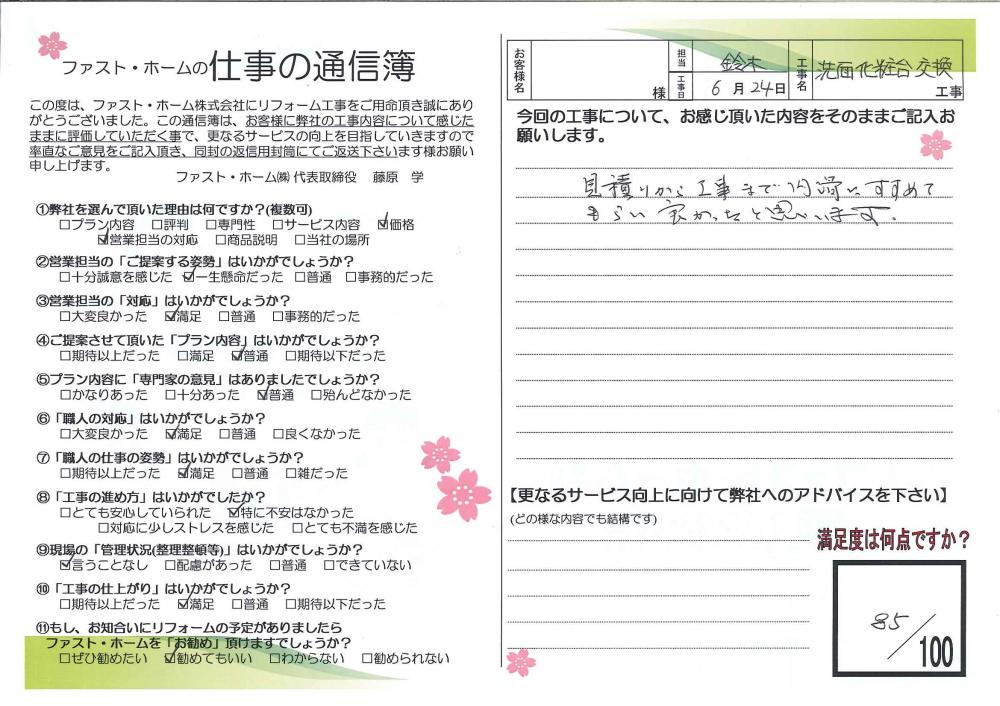 ファスト・ホームの仕事の通信簿
この度は、ファスト・ホーム株式会社にリフォーム工事をご用命頂き誠にあり
がとうございました。この通信簿は、お客様に弊社の工事内容について感じた
ままに評価していただく事で、更なるサービスの向上を目指していきますので
率直なご意見をご記入頂き、同封の返信用封筒にてご返送下さいます様お願い
申し上げます。
ファスト・ホーム㈱ 代表取締役 藤原 学
①弊社を選んで頂いた理由は何ですか?(複数可)
□プラン内容 □評判 □専門性 □サービス内容 ☑価格
☑営業担当の対応 □商品説明 □当社の場所
②営業担当の「ご提案する姿勢」はいかがでしょうか?
□十分誠意を感じた ☑一生懸命だった □普通 □事務的だった
③営業担当の「対応」はいかがでしょうか?
□大変良かった ☑満足 □普通 □事務的だった
④ご提案させて頂いた「プラン内容」はいかがでしょうか?
□期待以上だった □満足 ☑普通 □期待以下だった
⑤プラン内容に「専門家の意見」はありましたでしょうか?
□かなりあった □十分あった ☑普通 □殆んどなかった
⑥「職人の対応」はいかがでしょうか?
□大変良かった ☑満足 □普通 □良くなかった
⑦「職人の仕事の姿勢」はいかがでしょうか?
□期待以上だった ☑満足 □普通 □雑だった
⑧「工事の進め方」はいかがでしたか?
□とても安心していられた ☑特に不安はなかった
□対応に少しストレスを感じた □とても不満を感じた
⑨現場の「管理状況(整理整頓等)」はいかがでしょうか?
☑言うことなし □配慮があった □普通 □できていない
⑩「工事の仕上がり」はいかがでしょうか?
□期待以上だった ☑満足 □普通 □期待以下だった
⑪もし、お知合いにリフォームの予定がありましたら
ファスト・ホームを「お勧め」頂けますでしょうか?
□ぜひ勧めたい ☑勧めてもいい □わからない □勧められない
お客様名 様 担当 鈴木 工事日 6月24日 工事名 洗面化粧台交換 工事
今回の工事について、お感じ頂いた内容をそのままご記入お
願いします。
見積りから工事まで円滑にすすめて
もらい良かったと思います。
【更なるサービス向上に向けて弊社へのアドバイスを下さい】
(どの様な内容でも結構です)
満足度は何点ですか?
85/100